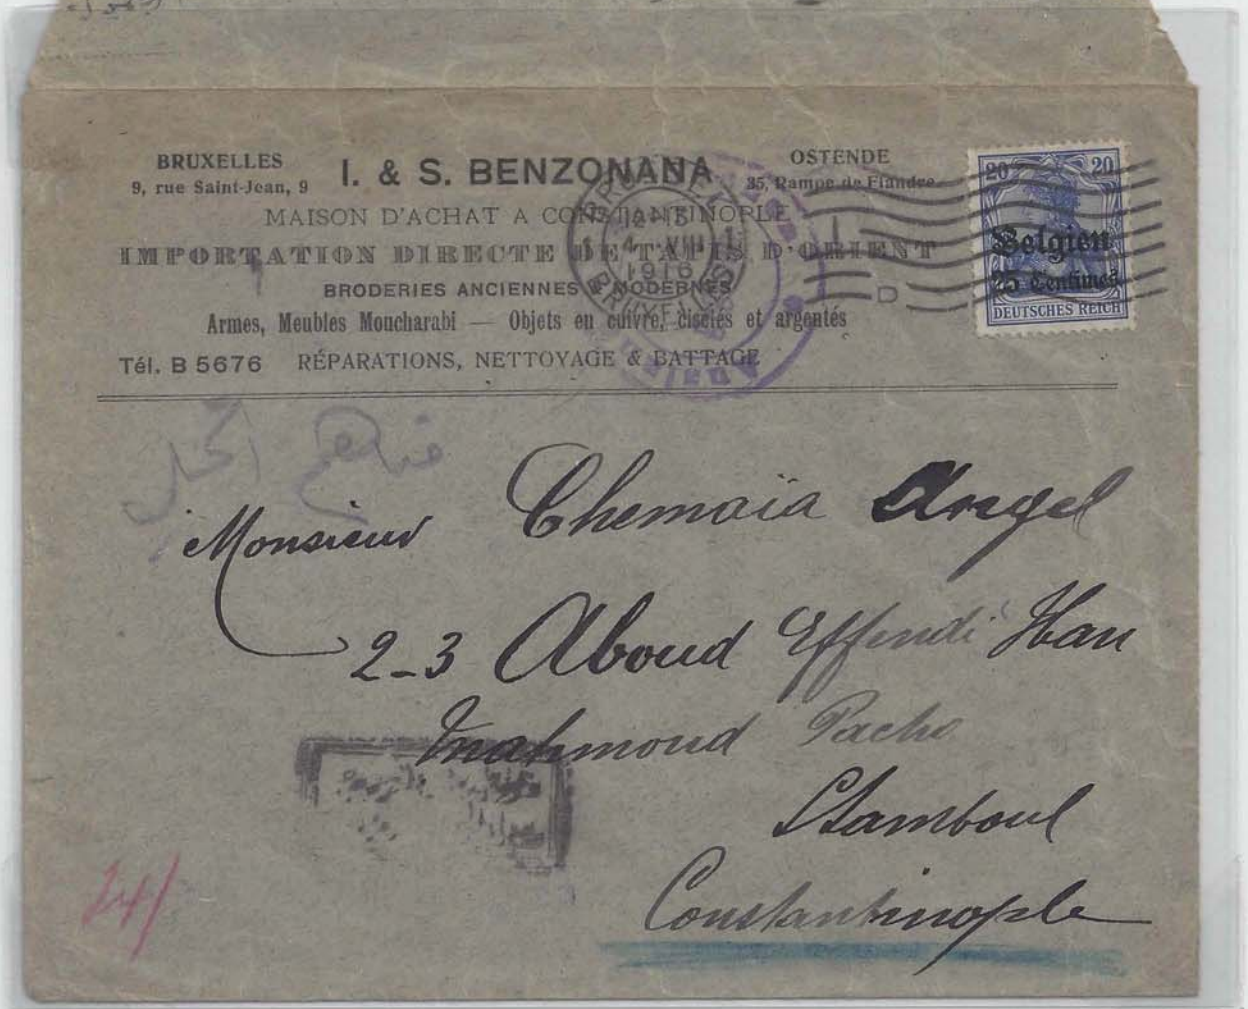 BRUXELLES
9, rue Saint-Jean, 9
I. & S. BENZONANA
OSTENDE
35, Rampe de Flandre
MAISON D'ACHAT A CONSTANTINOPLE
IMPORTATION DIRECTE DE TAPIS D'ORIENT
BRODERIES ANCIENNES & MODERNES
Armes, Meubles Moucharabi — Objets en cuivre, ciselés et argentés
Tél. B 5676 RÉPARATIONS, NETTOYAGE & BATTAGE
BRUXELLES
12-13
4 VIII
1916
BRUXELLES
D
20 20
Belgien
25 Centimes
DEUTSCHES REICH
Monsieur Chemaïa Angel
2-3 Aboud Effendi Han
Mahmoud Pacha
Stamboul
Constantinople
24/